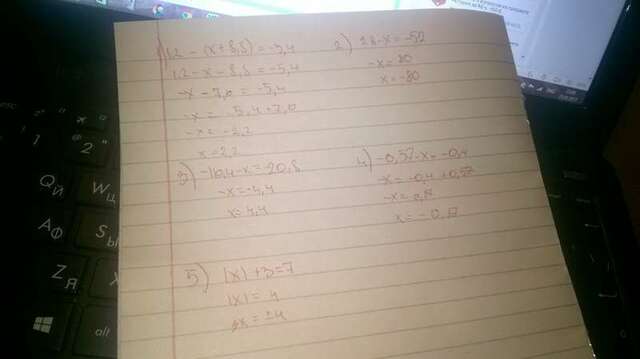 1) 1,2 - (x + 8,8) = -5,4
1,2 - x - 8,8 = -5,4
-x - 7,6 = -5,4
-x = -5,4 + 7,6
-x = -2,2
x = 2,2
2) 28 - x = -52
-x = 80
x = -80
3) -16,4 - x = -20,8
-x = -4,4
x = 4,4
4) -0,57 - x = -0,4
-x = -0,4 + 0,57
-x = 0,17
x = -0,17
5) |x| + 3 = 7
|x| = 4
x = ±4
Q Й
W Ц
A Ф
S Ы
Z Я
X
alt